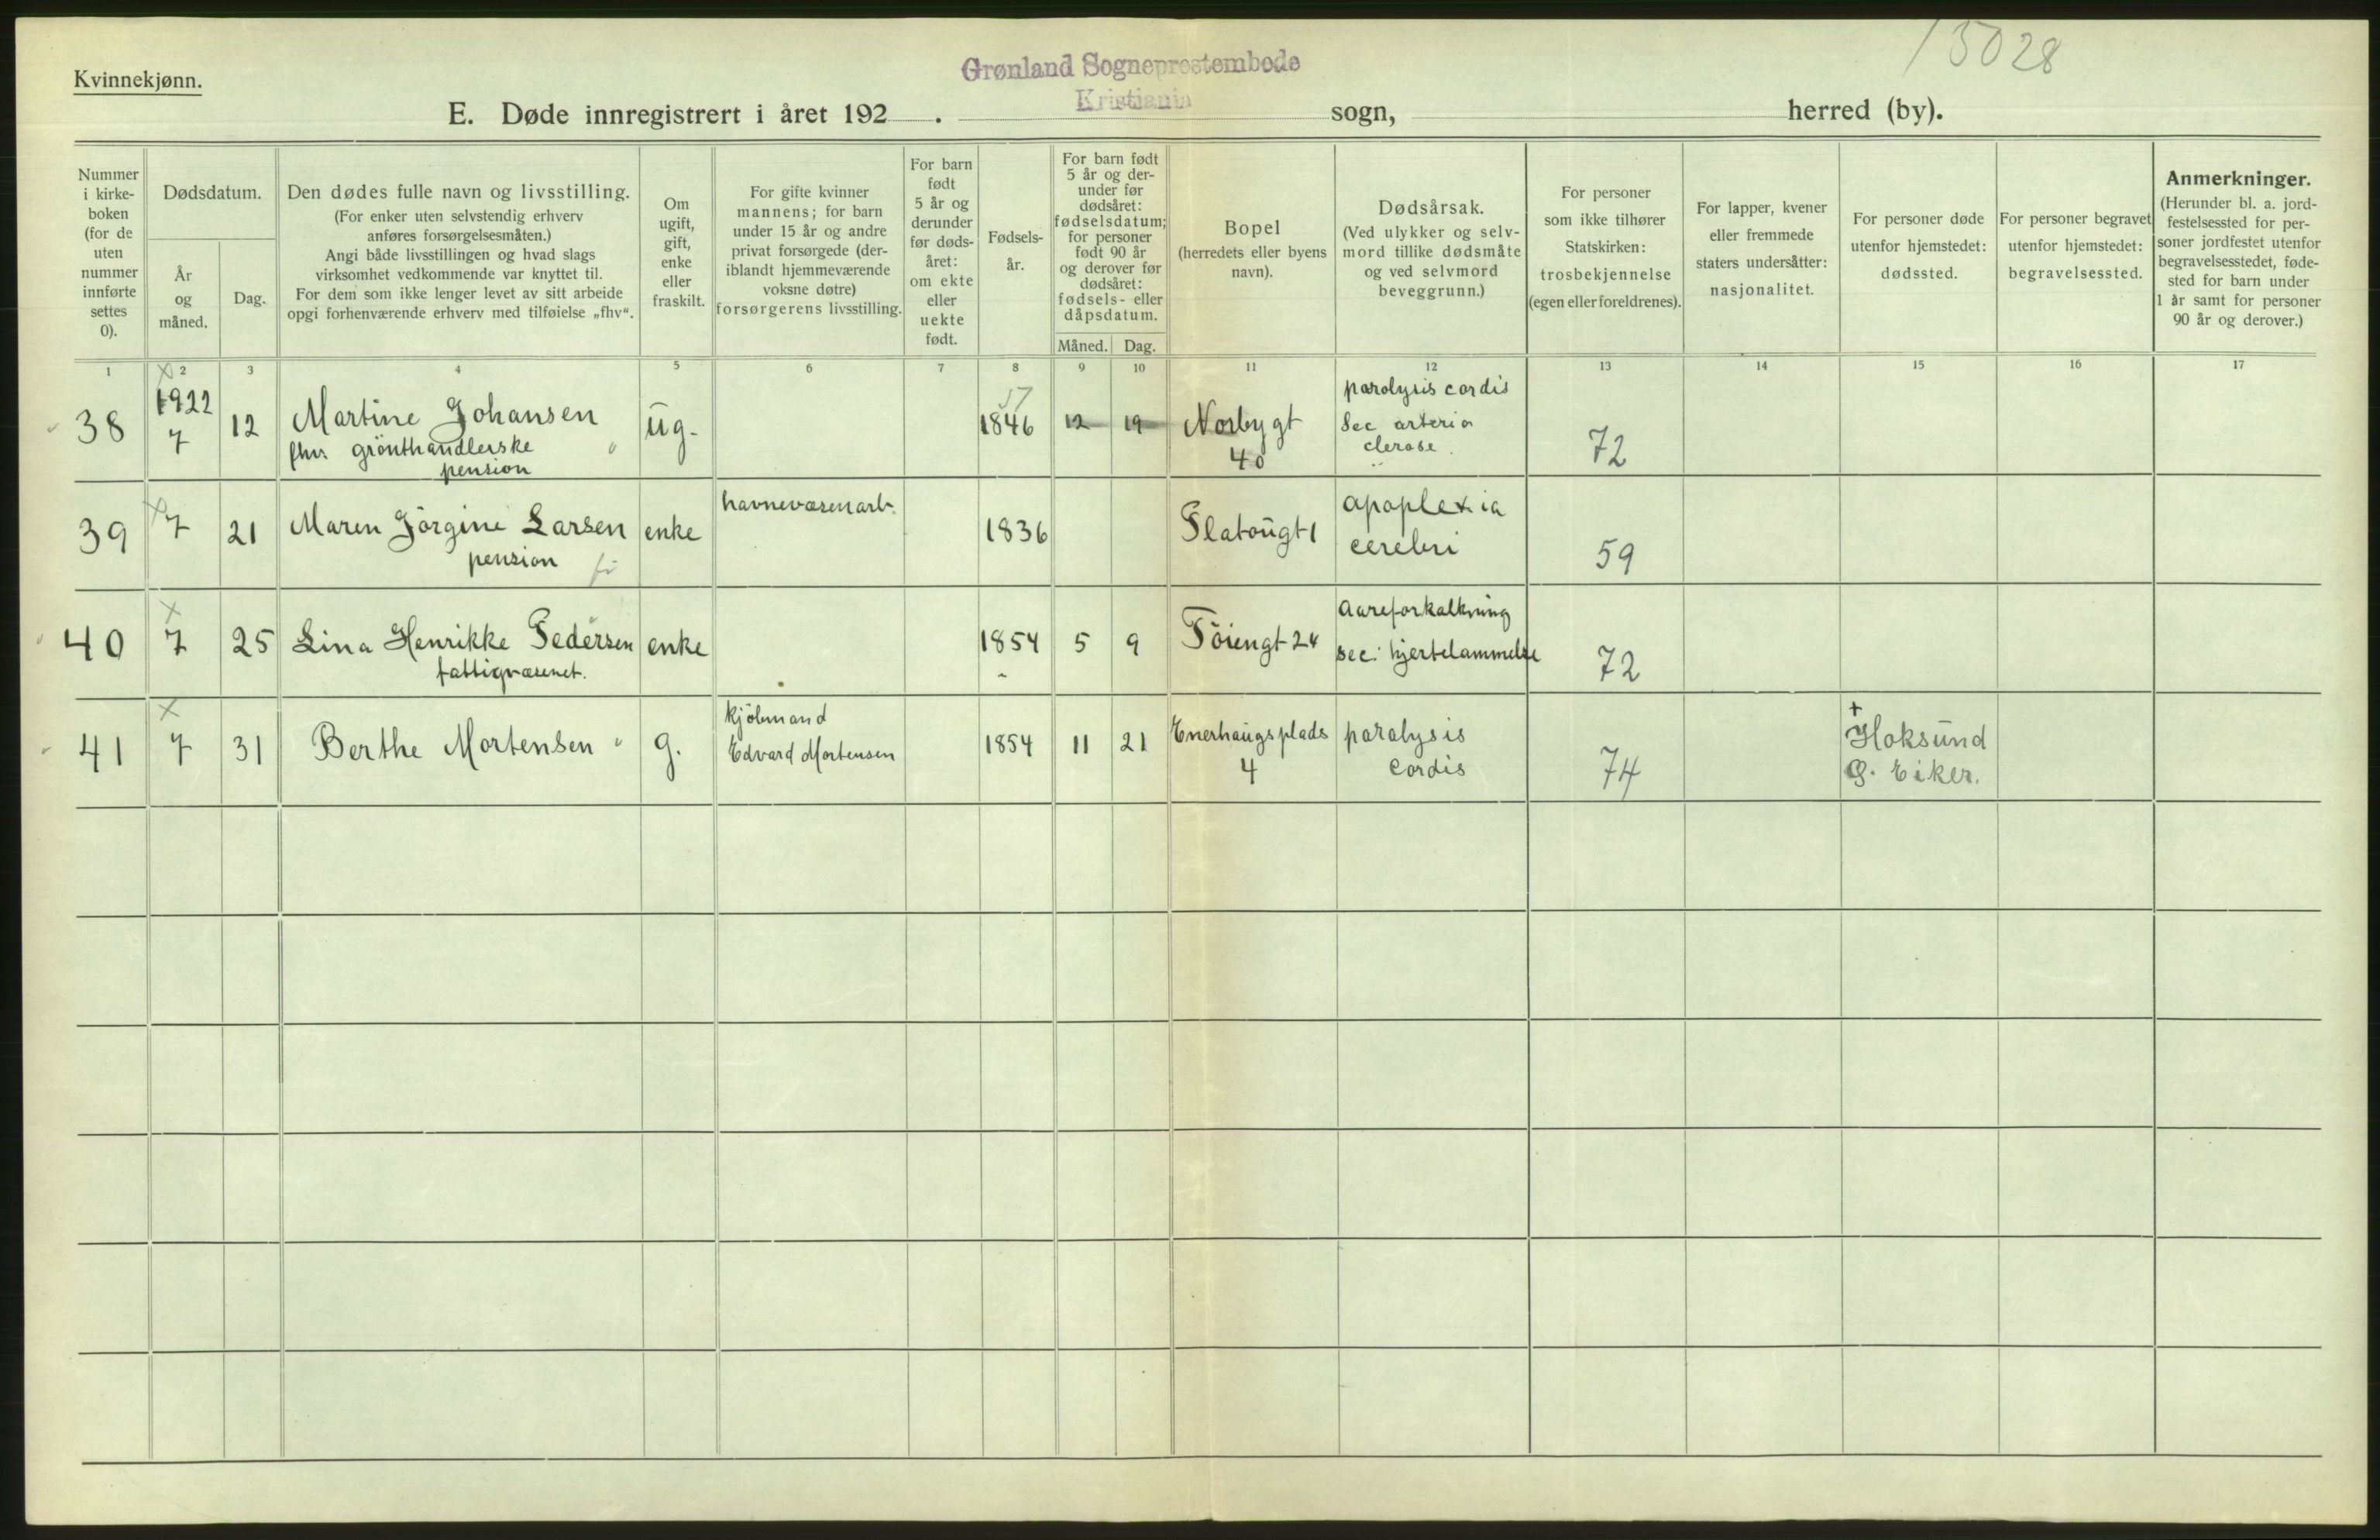 Grønland Sogneprestembede
Kristiania
15028
Kvinnekjønn.
E. Døde innregistrert i året 192 . sogn, herred (by).
Nummer
i kirke-
boken
(for de
uten
nummer
innførte
settes
0).
Dødsdatum.
År
og
måned.
Dag.
Den dødes fulle navn og livsstilling.
(For enker uten selvstendig erhverv
anføres forsørgelsesmåten.)
Angi både livsstillingen og hvad slags
virksomhet vedkommende var knyttet til.
For dem som ikke lenger levet av sitt arbeide
opgi forhenværende erhverv med tilføielse „fhv“.
Om
ugift,
gift,
enke
eller
fraskilt.
For gifte kvinner
mannens; for barn
under 15 år og andre
privat forsørgede (der-
iblandt hjemmeværende
voksne døtre)
forsørgerens livsstilling.
For barn
født
5 år og
derunder
før døds-
året:
om ekte
eller
uekte
født.
Fødsels-
år.
For barn født
5 år og der-
under før
dødsåret:
fødselsdatum;
for personer
født 90 år
og derover før
dødsåret:
fødsels- eller
dåpsdatum.
Måned. Dag.
Bopel
(herredets eller byens
navn).
Dødsårsak.
(Ved ulykker og selv-
mord tillike dødsmåte
og ved selvmord
beveggrunn.)
For personer
som ikke tilhører
Statskirken:
trosbekjennelse
(egen eller foreldrenes).
For lapper, kvener
eller fremmede
staters undersåtter:
nasjonalitet.
For personer døde
utenfor hjemstedet:
dødssted.
For personer begravet
utenfor hjemstedet:
begravelsessted.
Anmerkninger.
(Herunder bl. a. jord-
festelsessted for per-
soner jordfestet utenfor
begravelsesstedet, føde-
sted for barn under
1 år samt for personer
90 år og derover.)
1 2 3 4 5 6 7 8 9 10 11 12 13 14 15 16 17
38
1922
7
12
Martine Johansen
fhv. grönthandlerske
pension
ug.
57
1846
12
19
Norbygt
40
paralysis cordis
sec arterio
clerose
72
39
7
21
Maren Jörgine Larsen
pension
enke
havnevæsenarb.
1836
Platougt 1
apoplexia
cerebri
59
40
7
25
Lina Henrikke Pedersen
fattigvæsenet.
enke
1854
5
9
Töiengt 24
aareforkalkning
sec. hjertelammelse
72
41
7
31
Berthe Mortensen
g.
kjöbmand
Edvard Mortensen
1854
11
21
Enerhaugsplads
4
paralysis
cordis
74
+
Hoksund
Ø. Eiker.